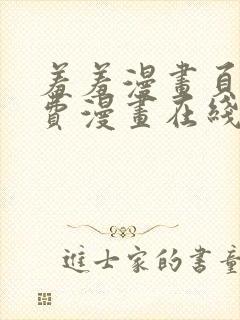 羞羞漫畫頁
費漫畫在綫
進士家的書童